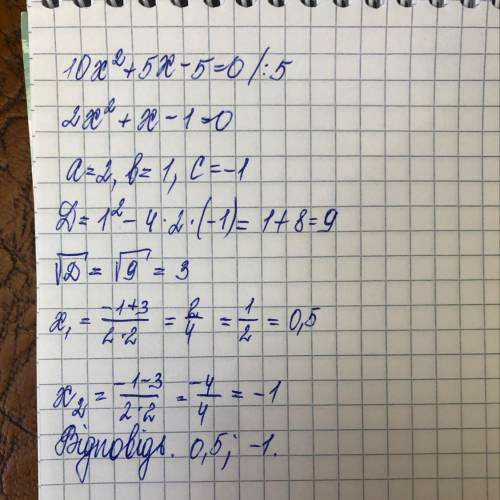 10x² + 5x - 5 = 0 /:5
2x² + x - 1 = 0
a = 2, в = 1, c = -1
D = 1² - 4 · 2 · (-1) = 1 + 8 = 9
√D = √9 = 3
x₁ = (-1+3)/(2·2) = 2/4 = 1/2 = 0,5
x₂ = (-1-3)/(2·2) = -4/4 = -1
Відповідь. 0,5; -1.